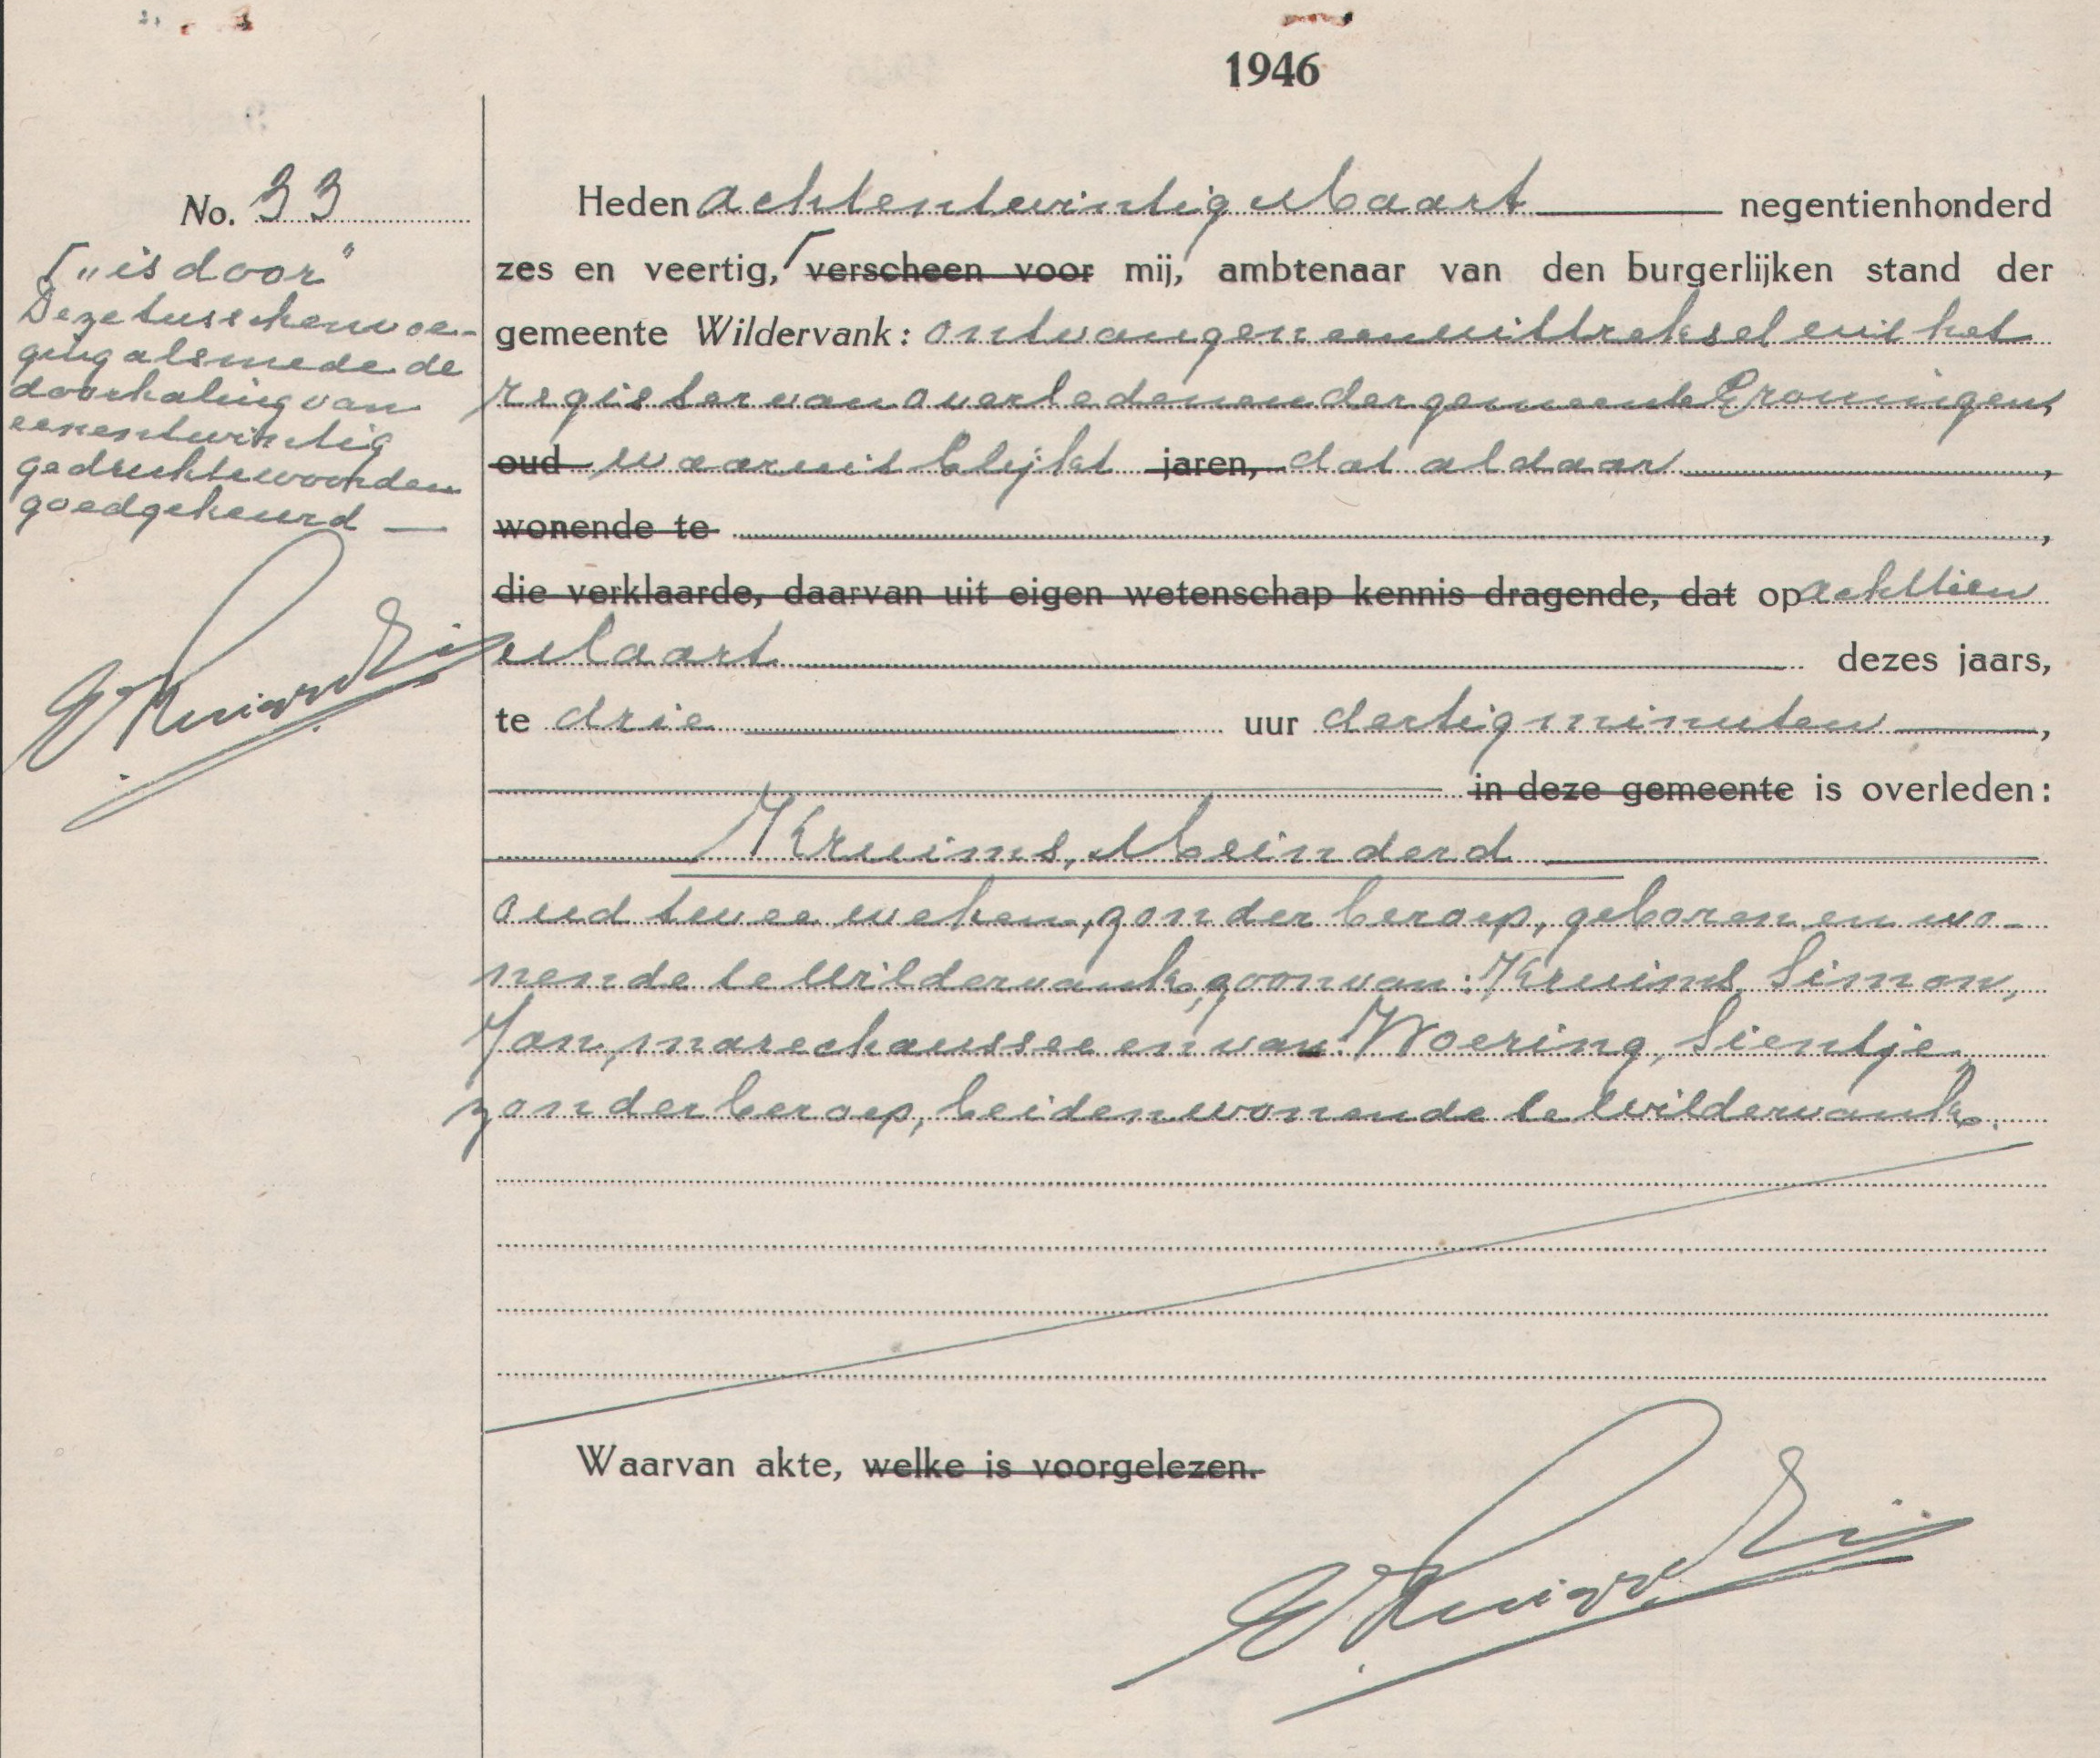 1946
No. 33
Heden achtentwintig Maart negentienhonderd
„is door"
zes en veertig, verscheen voor mij, ambtenaar van den burgerlijken stand der
Deze tusschenvoe-
ging alsmede de
doorhaling van
eenentwintig
gedrukte woorden
goedgekeurd
gemeente Wildervank: ontvangen een uittreksel uit het
register van overledenen der gemeente Groningen,
oud waaruit blijkt jaren, dat aldaar ,
wonende te ,
die verklaarde, daarvan uit eigen wetenschap kennis dragende, dat op achttien
Maart dezes jaars,
te drie uur dertig minuten ,
in deze gemeente is overleden:
Kruims, Meinderd
oud twee weken, zonder beroep, geboren en wo-
nende te Wildervank, zoon van: Kruims, Simon,
Jan, marechaussee en van: Woering, Sientje,
zonder beroep, beiden wonende te Wildervank.
Waarvan akte, welke is voorgelezen.